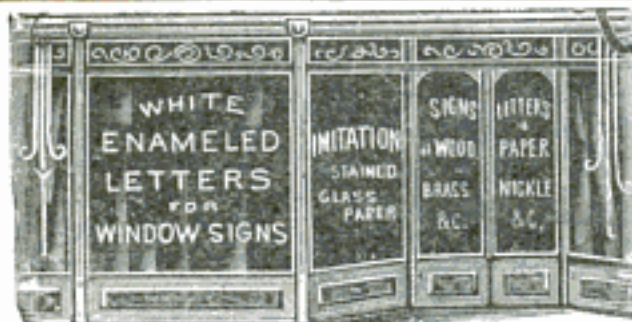 WHITE
ENAMELED
LETTERS
FOR
WINDOW SIGNS
IMITATION
STAINED
GLASS
PAPER
SIGNS
of WOOD
BRASS
&C.
LETTERS
&
PAPER
NICKLE
&C.